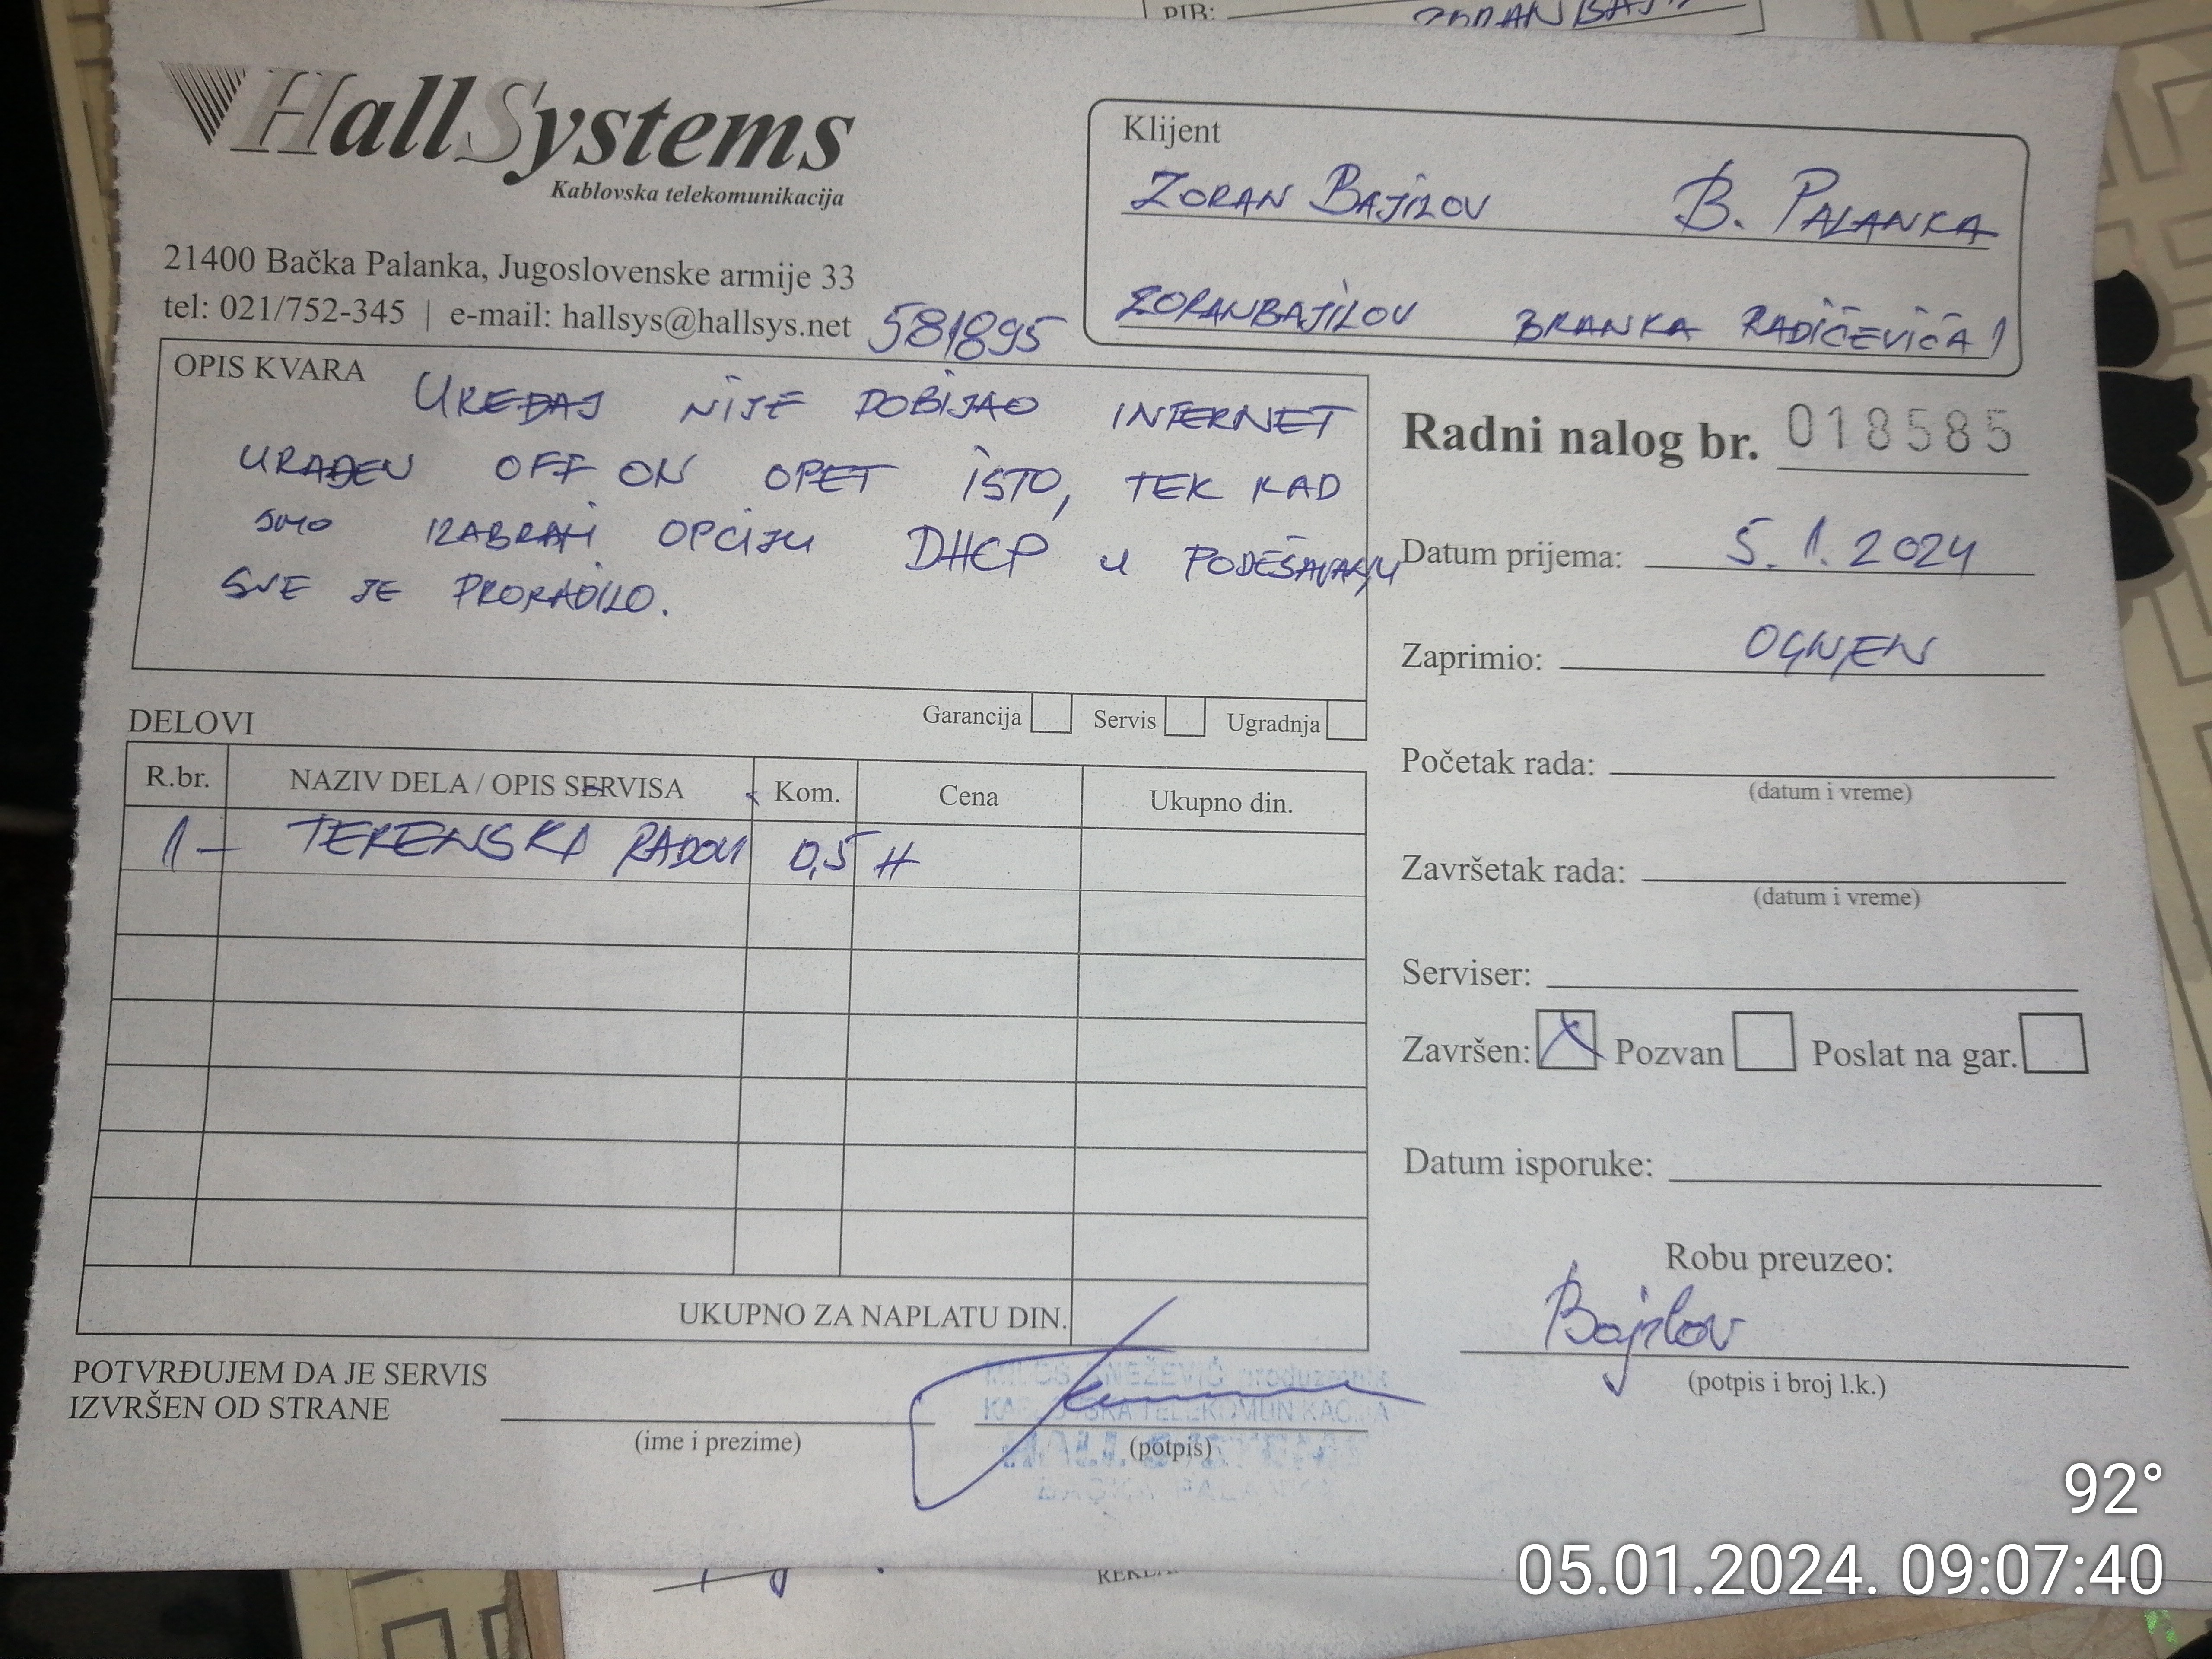 PIB:
HallSystems
Kablovska telekomunikacija
21400 Bačka Palanka, Jugoslovenske armije 33
tel: 021/752-345 | e-mail: hallsys@hallsys.net
581895
Klijent
ZORAN BAJILOV B. PALANKA
ZORANBAJILOV BRANKA RADIČEVIĆA 1
OPIS KVARA
UREĐAJ NIJE DOBIJAO INTERNET
URAĐEN OFF ON OPET ISTO, TEK KAD
SMO IZABRALI OPCIJU DHCP U PODEŠAVANJU
SVE JE PRORADILO.
Garancija Servis Ugradnja
Radni nalog br. 018585
Datum prijema: 5.1.2024
Zaprimio: OGNJEN
Početak rada:
(datum i vreme)
Završetak rada:
(datum i vreme)
Serviser:
Završen: X Pozvan Poslat na gar.
Datum isporuke:
Robu preuzeo:
Bajilov
(potpis i broj l.k.)
DELOVI
R.br. NAZIV DELA / OPIS SERVISA Kom. Cena Ukupno din.
1 - TERENSKI RADOVI 0,5 H
UKUPNO ZA NAPLATU DIN.
POTVRĐUJEM DA JE SERVIS
IZVRŠEN OD STRANE
(ime i prezime)
(potpis)
KABLOVSKA TELEKOMUNIKACIJA
92°
05.01.2024. 09:07:40